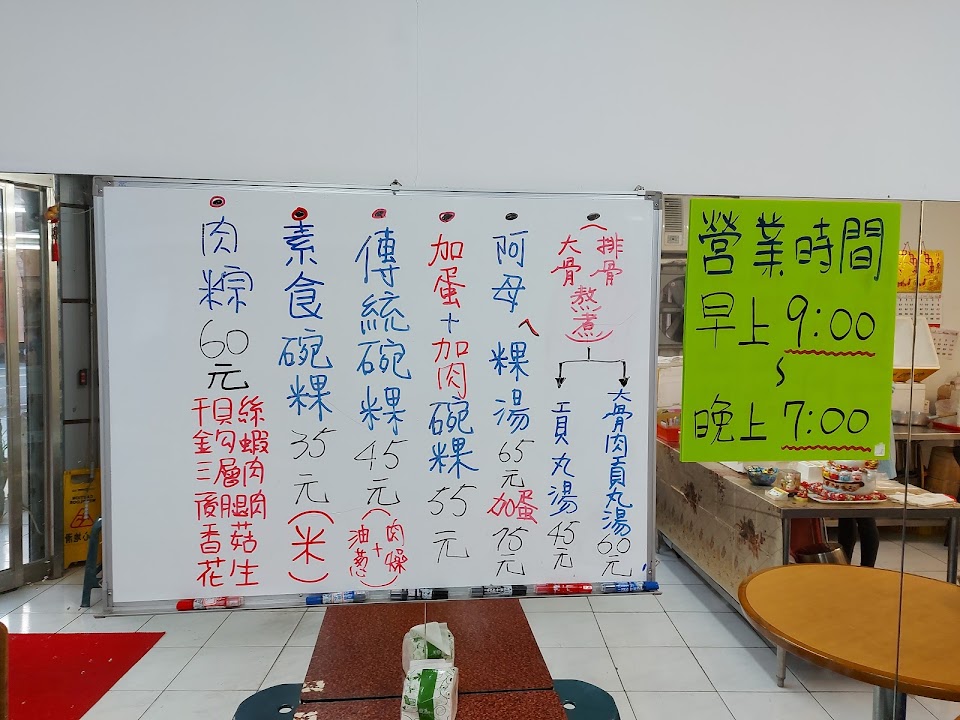 (排骨
大骨
熬煮)
大骨肉貢丸湯60元
貢丸湯45元
阿母ㄟ粿湯65元
加蛋75元
加蛋+加肉碗粿55元
傳統碗粿45元
(肉燥
+
油蔥)
素食碗粿35元(米)
肉粽60元
干貝絲
金勾蝦
三層肉
後腿肉
香菇
花生
營業時間
早上9:00
~
晚上7:00